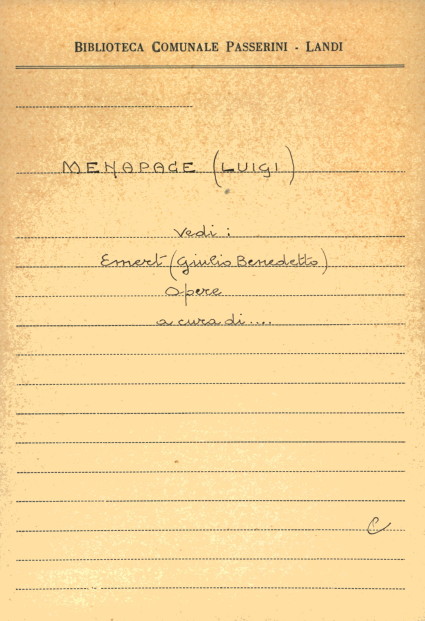 BIBLIOTECA COMUNALE PASSERINI - LANDI
MENAPACE (LUIGI)
Vedi :
Emert (Giulio Benedetto)
Opere
a cura di ....
C